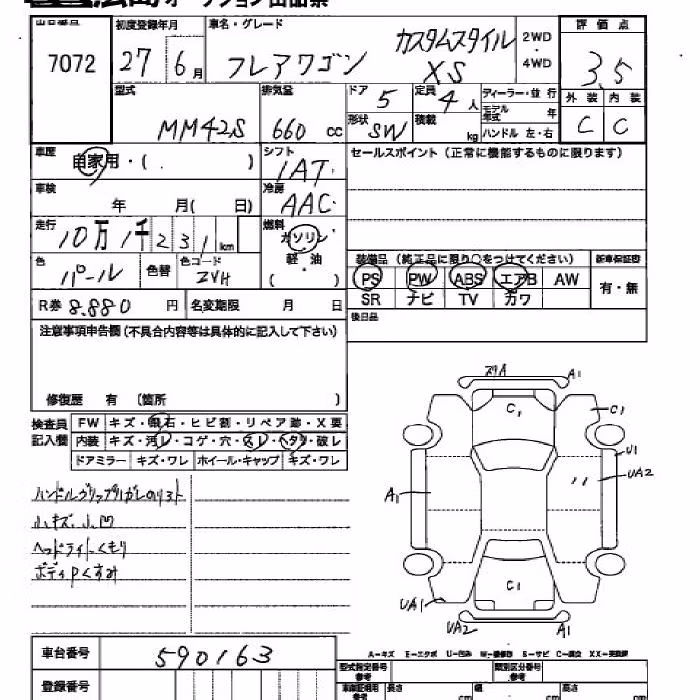 広島オークション出品票
出品番号 初度登録年月 車名・グレード 評価点
7072 27年6月 フレアワゴン カスタムスタイル XS 2WD・4WD 3.5
型式 排気量 ドア 5 定員 4人 ディーラー・並行 外装 内装
MM42S 660cc 形状 SW 積載 kg モデル年式 年 C C
ハンドル 左・右
車歴 自家用・( ) シフト 1AT セールスポイント(正常に機能するものに限ります)
車検 年 月( 日) 冷房 AAC
走行 10万1千231km 燃料 ガソリン
軽・油
( )
色 パール 色替 色コード ZVH
装備品(純正品に限り○をつけてください) 新車保証書
PS PW ABS エアB AW 有・無
SR ナビ TV カワ
R券 8.880円 名変期限 月 日
後日品
注意事項申告欄(不具合内容等は具体的に記入して下さい)
修復歴 有 (箇所 )
検査員記入欄
FW キズ・飛石・ヒビ割・リペア跡・X要
内装 キズ・汚レ・コゲ・穴・スレ・ヘタリ・破レ
ドアミラー キズ・ワレ ホイール・キャップ キズ・ワレ
小キズ、小凹
ヘッドライトくもり
スリA A1
C1 C1
U1
UA2
A1
C1
UA1
UA2 A1
A-キズ E-エクボ U-凹み S-サビ C-腐食
車台番号 590163
型式指定番号 類別区分番号
登録番号
長さ cm 幅 cm